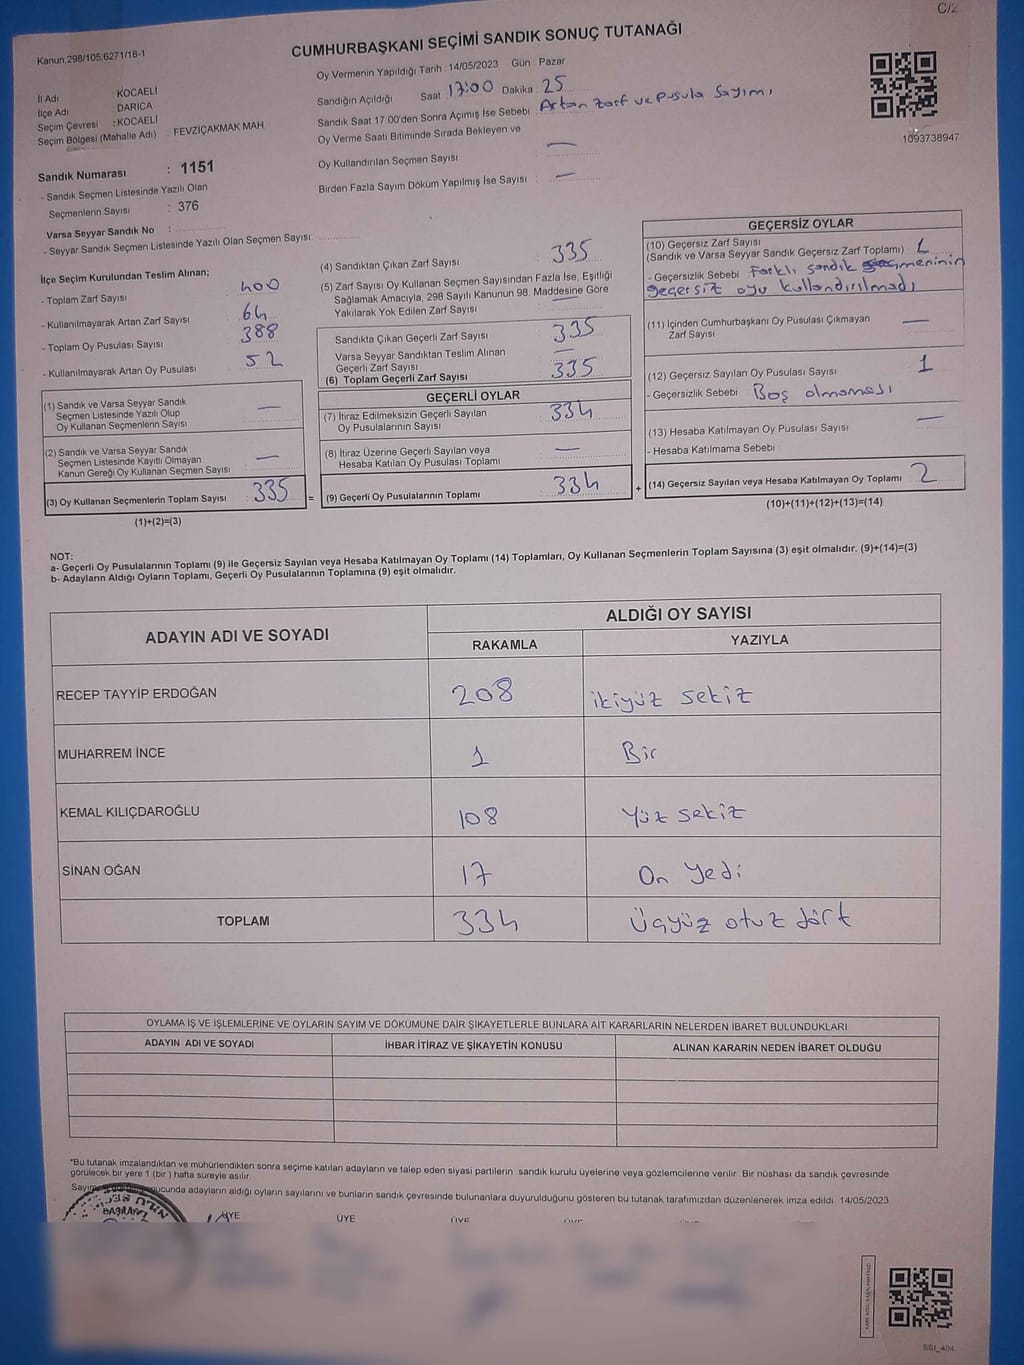 C/2
Kanun.298/105,6271/18-1
CUMHURBAŞKANI SEÇİMİ SANDIK SONUÇ TUTANAĞI
İl Adı : KOCAELİ
İlçe Adı : DARICA
Seçim Çevresi : KOCAELİ
Seçim Bölgesi (Mahalle Adı) : FEVZİÇAKMAK MAH
Oy Vermenin Yapıldığı Tarih : 14/05/2023 Gün : Pazar
Sandığın Açıldığı Saat 17:00 Dakika 25
Sandık Saat 17:00'den Sonra Açımış İse Sebebi : Artan zarf ve pusula sayımı
Oy Verme Saati Bitiminde Sırada Bekleyen ve
Oy Kullandırılan Seçmen Sayısı : —
Birden Fazla Sayım Döküm Yapılmış İse Sayısı : —
1093738947
Sandık Numarası : 1151
- Sandık Seçmen Listesinde Yazılı Olan
Seçmenlerin Sayısı : 376
Varsa Seyyar Sandık No :
- Seyyar Sandık Seçmen Listesinde Yazılı Olan Seçmen Sayısı:
İlçe Seçim Kurulundan Teslim Alınan;
- Toplam Zarf Sayısı : 400
- Kullanılmayarak Artan Zarf Sayısı : 64
- Toplam Oy Pusulası Sayısı : 388
- Kullanılmayarak Artan Oy Pusulası : 52
(1) Sandık ve Varsa Seyyar Sandık
Seçmen Listesinde Yazılı Olup
Oy Kullanan Seçmenlerin Sayısı : —
(2) Sandık ve Varsa Seyyar Sandık
Seçmen Listesinde Kayıtlı Olmayan
Kanun Gereği Oy Kullanan Seçmen Sayısı : —
(3) Oy Kullanan Seçmenlerin Toplam Sayısı : 335
(1)+(2)=(3)
(4) Sandıktan Çıkan Zarf Sayısı : 335
(5) Zarf Sayısı Oy Kullanan Seçmen Sayısından Fazla İse, Eşitliği
Sağlamak Amacıyla, 298 Sayılı Kanunun 98. Maddesine Göre
Yakılarak Yok Edilen Zarf Sayısı : —
Sandıkta Çıkan Geçerli Zarf Sayısı : 335
Varsa Seyyar Sandıktan Teslim Alınan
Geçerli Zarf Sayısı : —
(6) Toplam Geçerli Zarf Sayısı : 335
GEÇERLİ OYLAR
(7) İtiraz Edilmeksizin Geçerli Sayılan
Oy Pusulalarının Sayısı : 334
(8) İtiraz Üzerine Geçerli Sayılan veya
Hesaba Katılan Oy Pusulası Toplamı : —
= (9) Geçerli Oy Pusulalarının Toplamı : 334
GEÇERSİZ OYLAR
(10) Geçersiz Zarf Sayısı
(Sandık ve Varsa Seyyar Sandık Geçersiz Zarf Toplamı) 1
- Geçersizlik Sebebi : Farklı sandık seçmeninin
geçersiz oyu kullandırılmadı
(11) İçinden Cumhurbaşkanı Oy Pusulası Çıkmayan
Zarf Sayısı : —
(12) Geçersiz Sayılan Oy Pusulası Sayısı : 1
- Geçersizlik Sebebi : Boş olmaması
(13) Hesaba Katılmayan Oy Pusulası Sayısı : —
- Hesaba Katılmama Sebebi :
+ (14) Geçersiz Sayılan veya Hesaba Katılmayan Oy Toplamı : 2
(10)+(11)+(12)+(13)=(14)
NOT:
a- Geçerli Oy Pusulalarının Toplamı (9) ile Geçersiz Sayılan veya Hesaba Katılmayan Oy Toplamı (14) Toplamları, Oy Kullanan Seçmenlerin Toplam Sayısına (3) eşit olmalıdır. (9)+(14)=(3)
b- Adayların Aldığı Oyların Toplamı, Geçerli Oy Pusulalarının Toplamına (9) eşit olmalıdır.
ADAYIN ADI VE SOYADI ALDIĞI OY SAYISI
RAKAMLA YAZIYLA
RECEP TAYYİP ERDOĞAN 208 ikiyüz sekiz
MUHARREM İNCE 1 Bir
KEMAL KILIÇDAROĞLU 108 Yüz sekiz
SİNAN OĞAN 17 On Yedi
TOPLAM 334 Üçyüz otuz dört
OYLAMA İŞ VE İŞLEMLERİNE VE OYLARIN SAYIM VE DÖKÜMÜNE DAİR ŞİKAYETLERLE BUNLARA AİT KARARLARIN NELERDEN İBARET BULUNDUKLARI
ADAYIN ADI VE SOYADI İHBAR İTİRAZ VE ŞİKAYETİN KONUSU ALINAN KARARIN NEDEN İBARET OLDUĞU
*Bu tutanak imzalandıktan ve mühürlendikten sonra seçime katılan adayların ve talep eden siyasi partilerin sandık kurulu üyelerine veya gözlemcilerine verilir. Bir nüshası da sandık çevresinde
görülecek bir yere 1 (bir) hafta süreyle asılır.
sonucunda adayların aldığı oyların sayılarını ve bunların sandık çevresinde bulunanlara duyurulduğunu gösteren bu tutanak tarafımızdan düzenlenerek imza edildi. 14/05/2023
BAŞKAN ÜYE ÜYE ÜYE
SSI_404